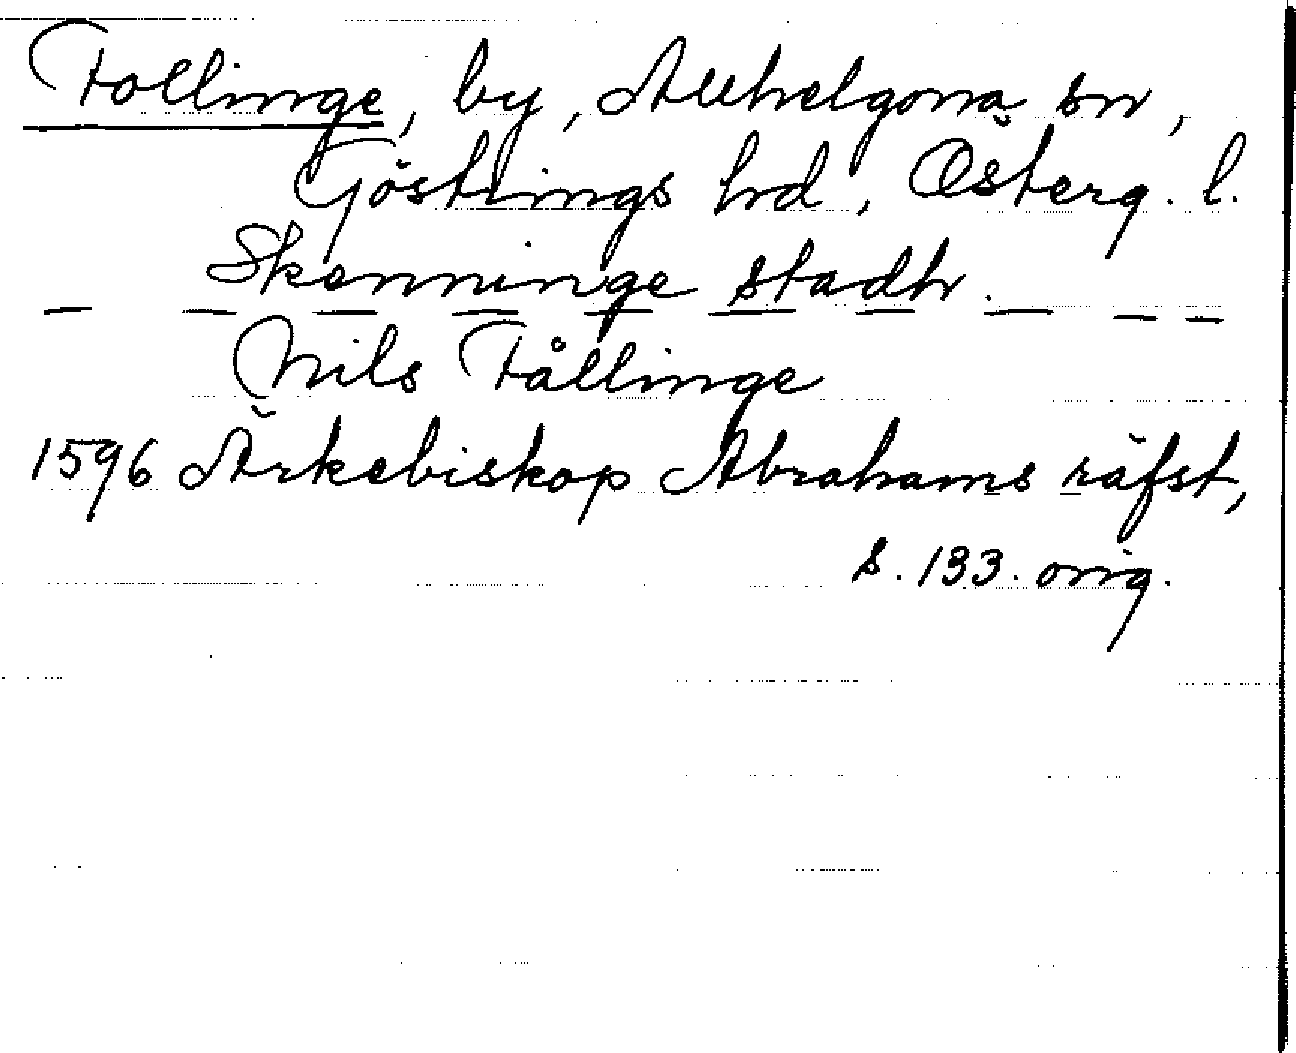 Follinge, by, Allhelgona sn,
Göstrings hd, Österg. l.
Skenninge stadh.
Nils Fållinge
1596 Ärkebiskop Abrahams räfst,
s. 133. orig.